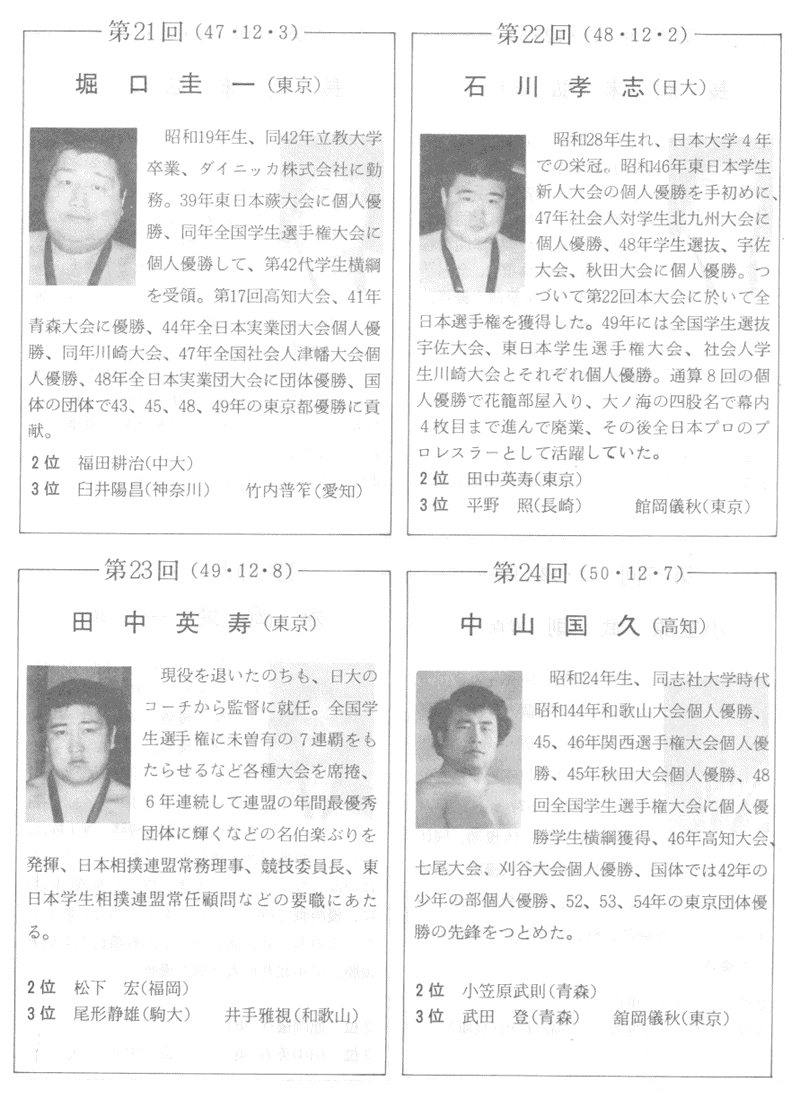 第21回(47・12・3)
堀口圭一(東京)
昭和19年生、同42年立教大学
卒業、ダイニッカ株式会社に勤
務。39年東日本蕨大会に個人優
勝、同年全国学生選手権大会に
個人優勝して、第42代学生横綱
を受領。第17回高知大会、41年
青森大会に優勝、44年全日本実業団大会個人優
勝、同年川崎大会、47年全国社会人津幡大会個
人優勝、48年全日本実業団大会に団体優勝、国
体の団体で43、45、48、49年の東京都優勝に貢
献。
2位 福田耕治(中大)
3位 臼井陽昌(神奈川) 竹内普笮(愛知)
第22回(48・12・2)
石川孝志(日大)
昭和28年生れ、日本大学4年
での栄冠。昭和46年東日本学生
新人大会の個人優勝を手初めに、
47年社会人対学生北九州大会に
個人優勝、48年学生選抜、宇佐
大会、秋田大会に個人優勝。つ
づいて第22回本大会に於いて全
日本選手権を獲得した。49年には全国学生選抜
宇佐大会、東日本学生選手権大会、社会人学
生川崎大会とそれぞれ個人優勝。通算8回の個
人優勝で花籠部屋入り、大ノ海の四股名で幕内
4枚目まで進んで廃業、その後全日本プロのプ
ロレスラーとして活躍していた。
2位 田中英寿(東京)
3位 平野 照(長崎) 館岡儀秋(東京)
第23回(49・12・8)
田中英寿(東京)
現役を退いたのちも、日大の
コーチから監督に就任。全国学
生選手権に未曽有の7連覇をも
たらせるなど各種大会を席捲、
6年連続して連盟の年間最優秀
団体に輝くなどの名伯楽ぶりを
発揮、日本相撲連盟常務理事、競技委員長、東
日本学生相撲連盟常任顧問などの要職にあた
る。
2位 松下 宏(福岡)
3位 尾形静雄(駒大) 井手雅視(和歌山)
第24回(50・12・7)
中山国久(高知)
昭和24年生、同志社大学時代
昭和44年和歌山大会個人優勝、
45、46年関西選手権大会個人優
勝、45年秋田大会個人優勝、48
回全国学生選手権大会に個人優
勝学生横綱獲得、46年高知大会、
七尾大会、刈谷大会個人優勝、国体では42年の
少年の部個人優勝、52、53、54年の東京団体優
勝の先鋒をつとめた。
2位 小笠原武則(青森)
3位 武田 登(青森) 舘岡儀秋(東京)